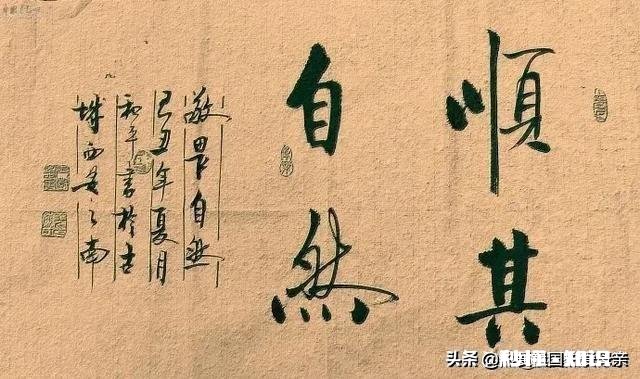 順其
自然
敬畏自然
己丑年夏月
和平書於古
城西安之南
头条